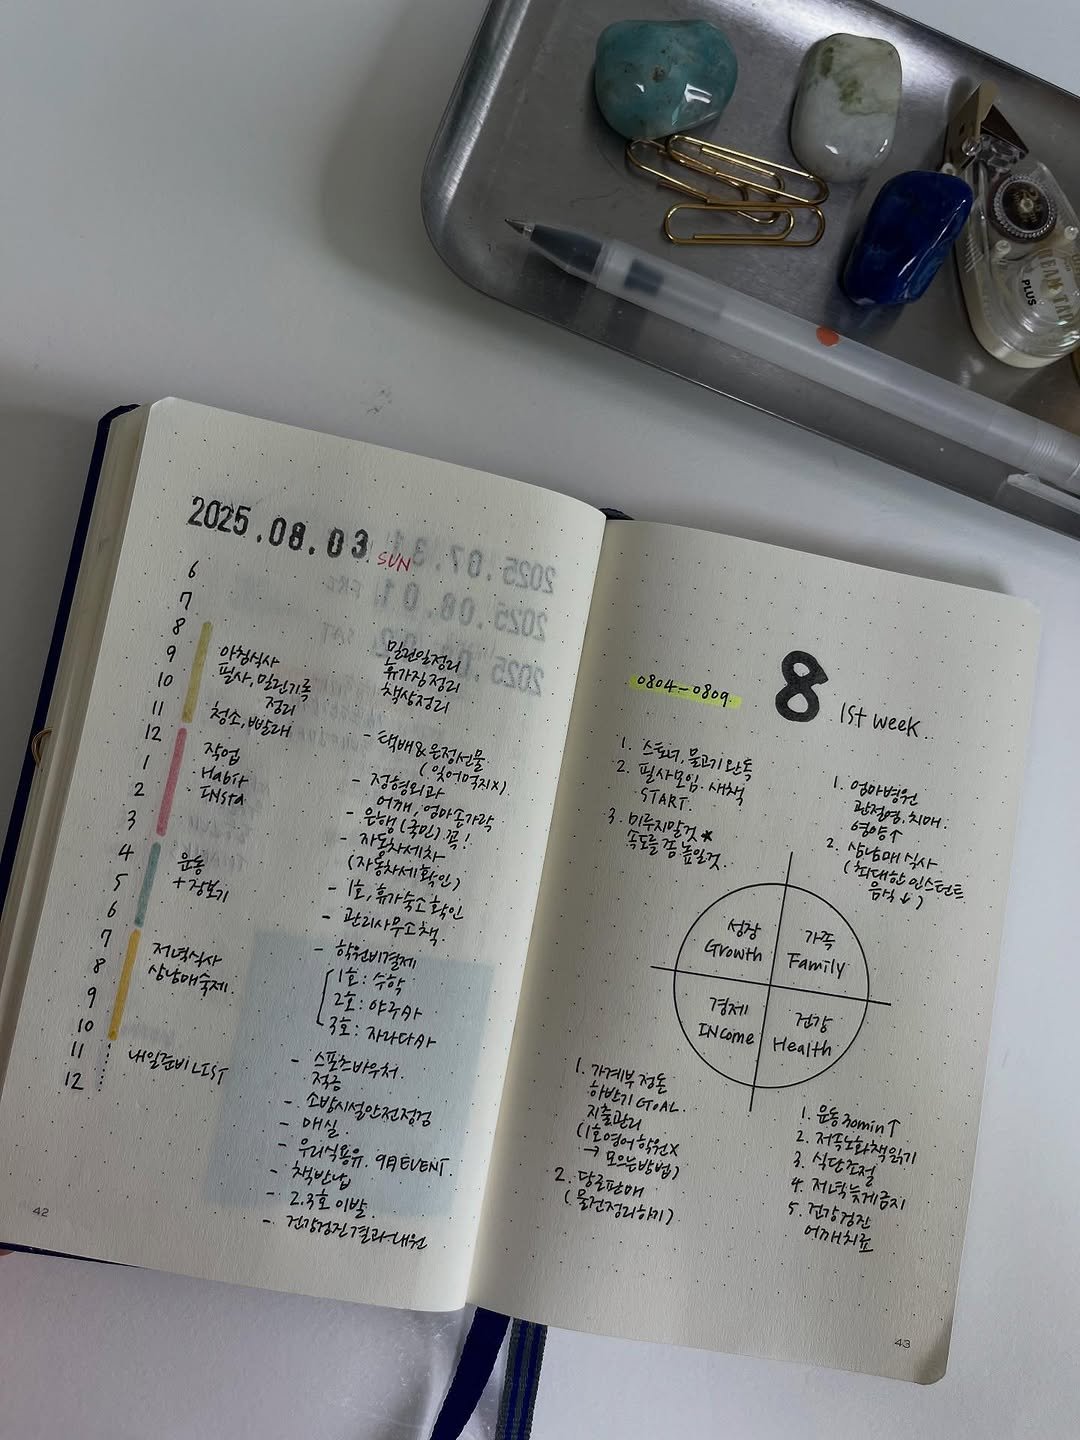 2025.08.03 SUN
6
7
8
9
10
11
12
1
2
3
4
5
6
7
8
9
10
11
12
아침식사
필사, 밀린기록
정리
청소, 빨래
작업
Habit
INSta
운동
+ 장보기
저녁식사
삼남매숙제.
내일준비 LIST
밀린일정리
휴가짐정리
책상정리
- 택배&은정선물.
(잊어먹지X)
- 정형외과
어깨, 엄마손가락
- 은행(국민) 꼭!
- 자동차세차
(자동차세확인)
- 1호, 휴가숙소확인
- 관리사무소책.
- 학원비결제
1호: 수학
2호: 야주사
3호: 자라다사
- 스포츠바우처.
적금
- 소방시설안전점검
- 매실.
- 우리식용유. 9日 EVENT.
- 책반납
- 2.3호 이발
- 건강검진결과-내원
42
0804-0809.
8 1St week..
1. 스토너, 물고기 완독
2. 필사모임. 새책
START.
3. 미루지말것 ★
속도를 좀 높일것.
1. 엄마병원
관절염, 치매.
영양↑
2. 삼남매 식사
(최대한 인스턴트
음식↓)
성장
Growth
가족
Family
경제
INcome
건강
Health
1. 가계부정돈
하반기 GOAL.
지출관리
(1호영어학원X
→ 모으는방법)
2. 당근판매
(물건정리하기)
1. 운동 30min↑
2. 저속노화책읽기
3. 식단조절
4. 저녁늦게금지
5. 건강검진
어깨치료
43
PLUS